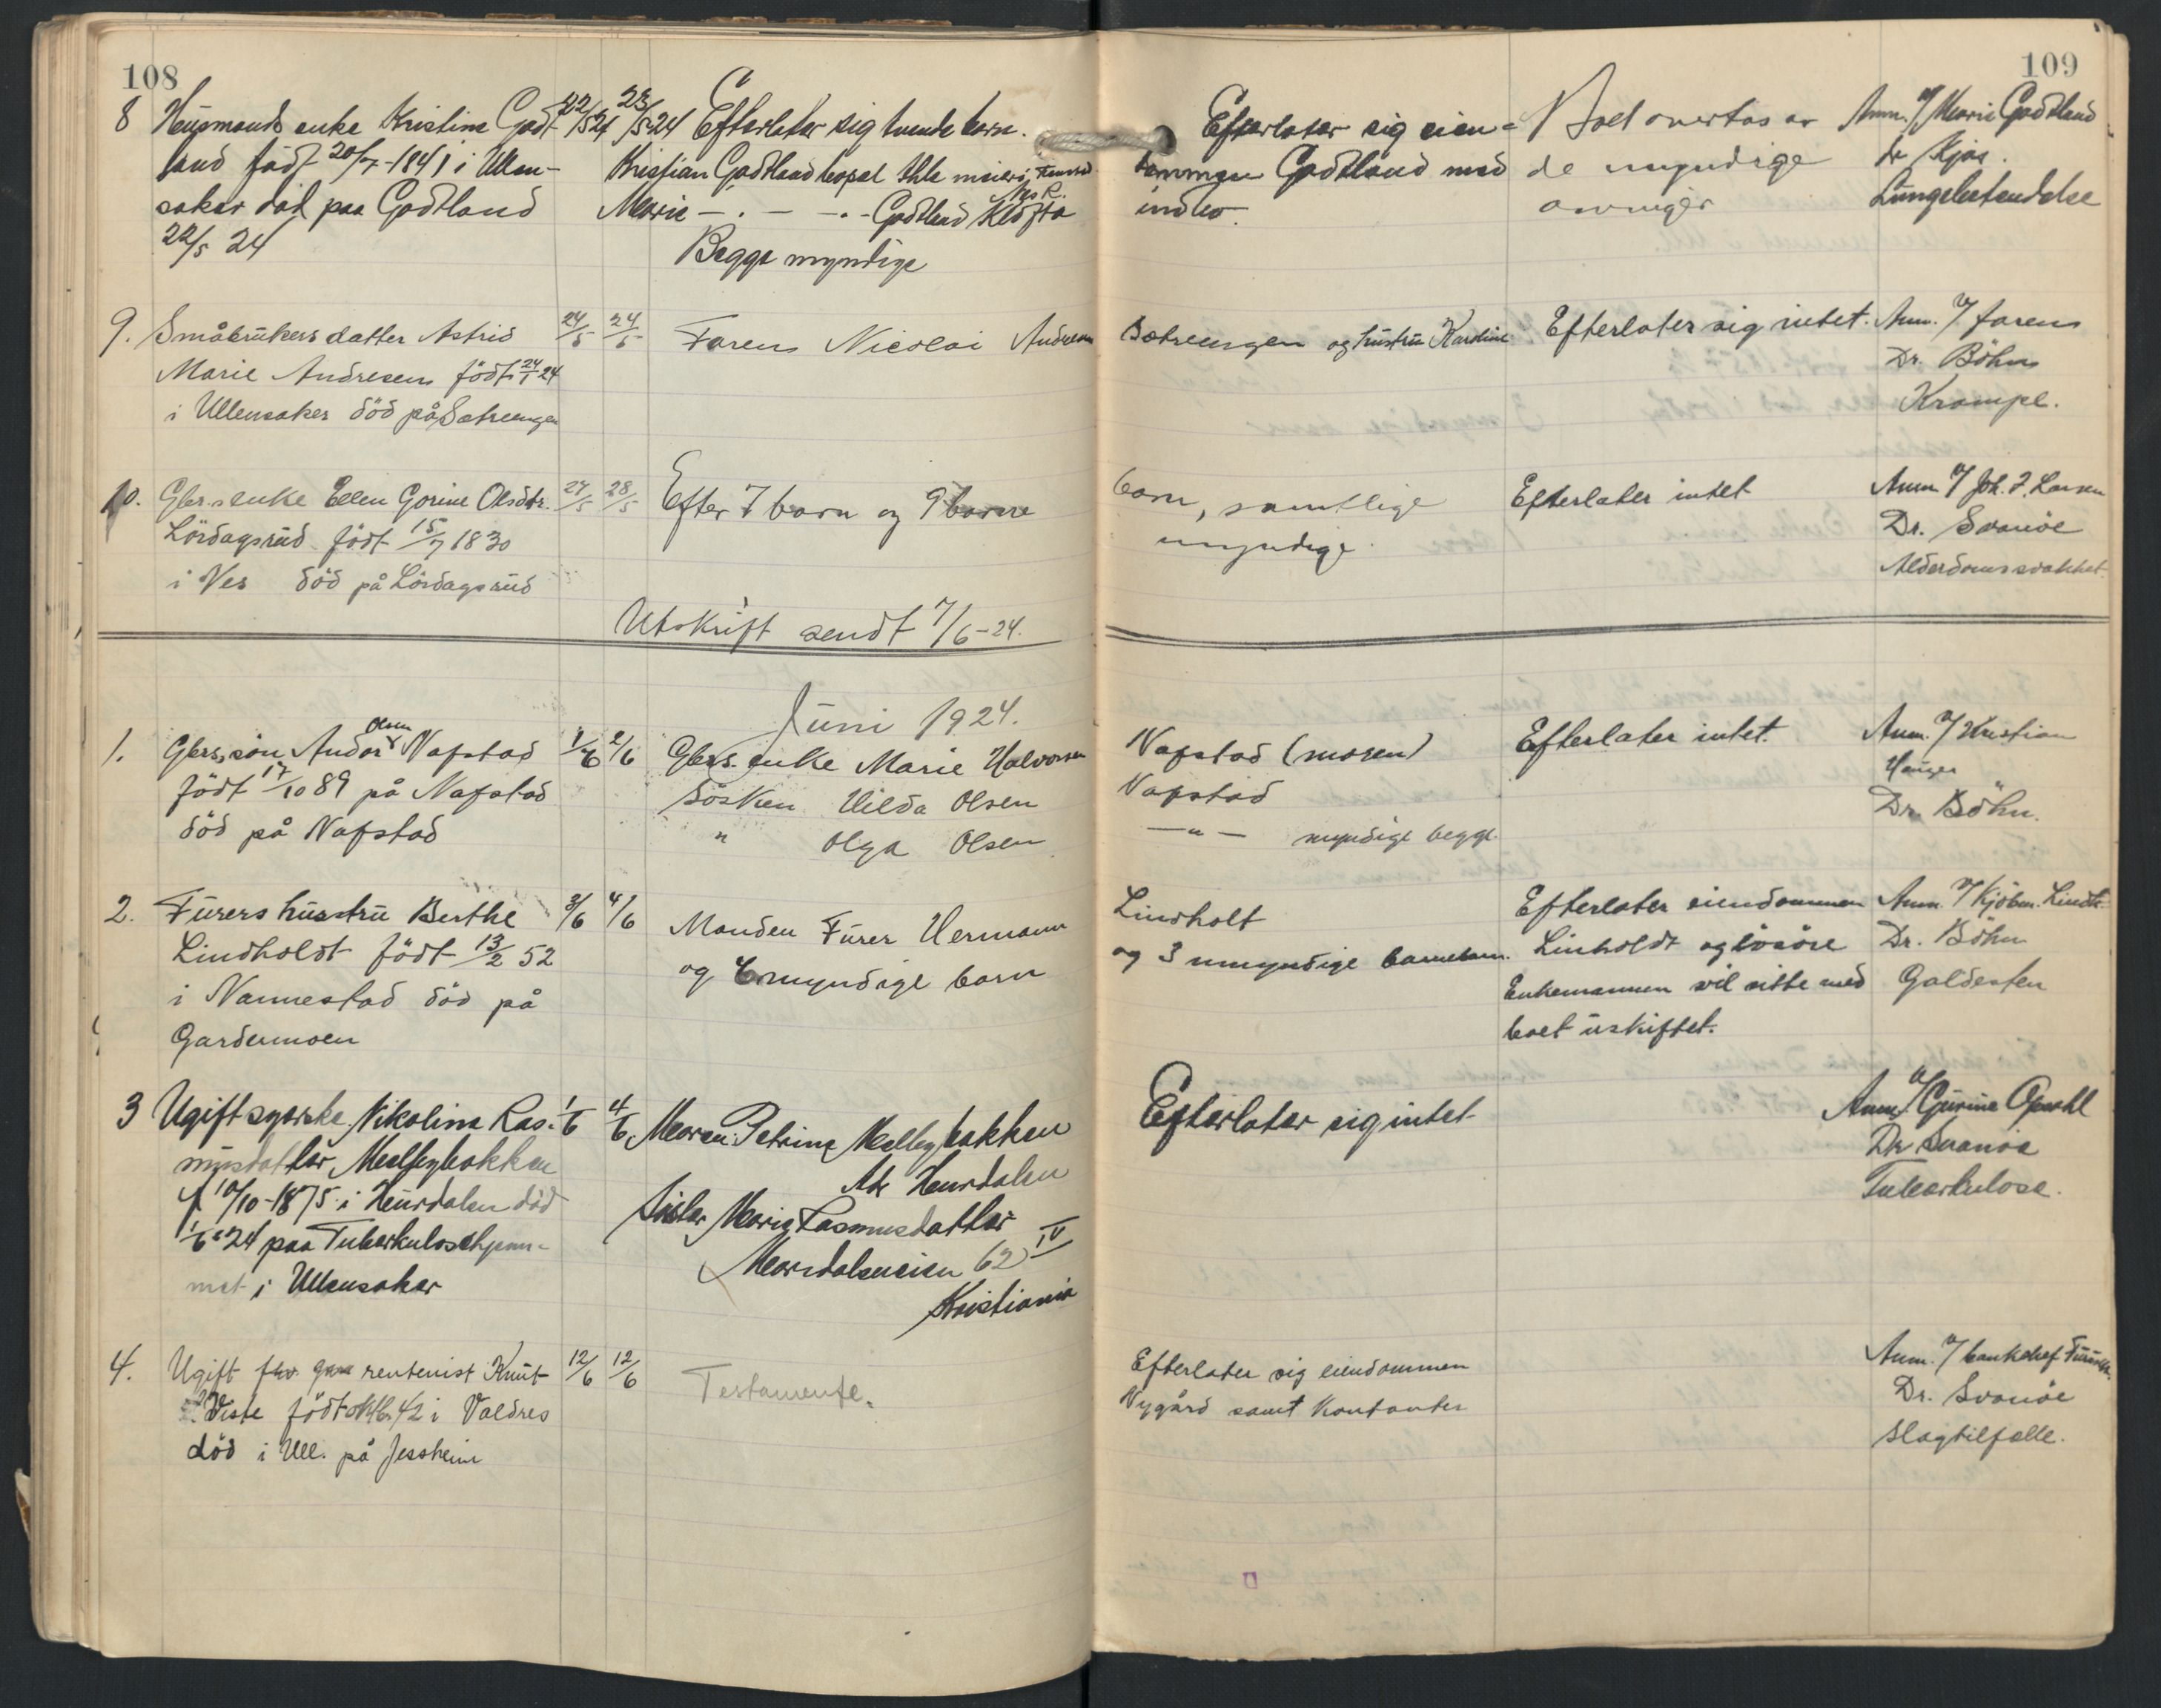 108
8 Husmands enke Kristine Godt- 22/5 24 23/5-24 Efterlater sig tvende barn.
land født 20/7-1841 i Ullen- Kristian Godtland bopæl meieri
saker død paa Godtland Marie — . — — . — Godtland Kløfta
22/5 24 Begge myndige
9. Småbrukers datter Astrid 24/5 24/5 Faren Nicolai Andresen
Marie Andresen født 24/1 24
i Ullensaker död på Sætreengen
10. Gbr.s enke Ellen Gorine Olsdtr. 27/5 28/5 Efter 7 barn og 9 barne
Lördagsrud född 15/7 1830
i Nes död på Lördagsrud
Utskrift sendt 7/6-24.
Juni 1924.
1. Gbrs. sön Andor Olsen Nafstad 1/6 2/6 Gbrs. enke Marie Halvorsen
födt 17/10 89 på Nafstad Sösken Hilda Olsen
död på Nafstad " Olga Olsen
2. Furers hustru Berthe 3/6 4/6 Manden Furer Hermann
Lindholdt födt 13/2 52 og 6 myndige barn
i Nannestad död på
Gardermoen
3 Ugift syerske Nikoline Ras- 1/6 4/6 Moren Petrine Melbybakken
musdatter Melbybakken Adr Hurdalen
f 10/10-1875 i Hurdalen död Söster Marie Rasmusdatter
1/6-24 paa Tuberkulosehjem- Maridalsveien 62 IV
met i Ullensaker Kristiania
4. Ugift fhv. rentenist Knut 12/6 12/6 Testamente.
Viste födt oktbr. 42 i Valdres
död i Ull. på Jessheim
109
Efterlater sig eien- Boet overtas av Anm. af Marie Godtland
dommen Godtland med de myndige dr Kjos.
indbo. arvinger Lungebetendelse
Sætreengen og hustru Karoline Efterlater sig intet. Anm. af faren
Dr. Böhn
Krampe.
barn, samtlige Efterlater intet Anm. af Joh. J. Larsen
myndige. Dr. Svanöe
Alderdomssvakhet.
Nafstad (moren) Efterlater intet. Anm. af Kristian
Nafstad Hauger
— " — myndige begge. Dr. Böhn.
Lindholt Efterlater eiendommen Anm. af Kjöbm. Lindh.
og 3 umyndige barnebarn. Linholdt og lösöre Dr. Böhn
Enkemannen vil sitte med Galdesten
boet uskiftet.
Efterlater sig intet Anm. af Gurine Opsahl
Dr Svanöe
Tuberkulose.
Efterlater sig eiendommen Anm. af banksjef
Nygård samt kontanter Dr. Svanöe
Slagtilfælle.